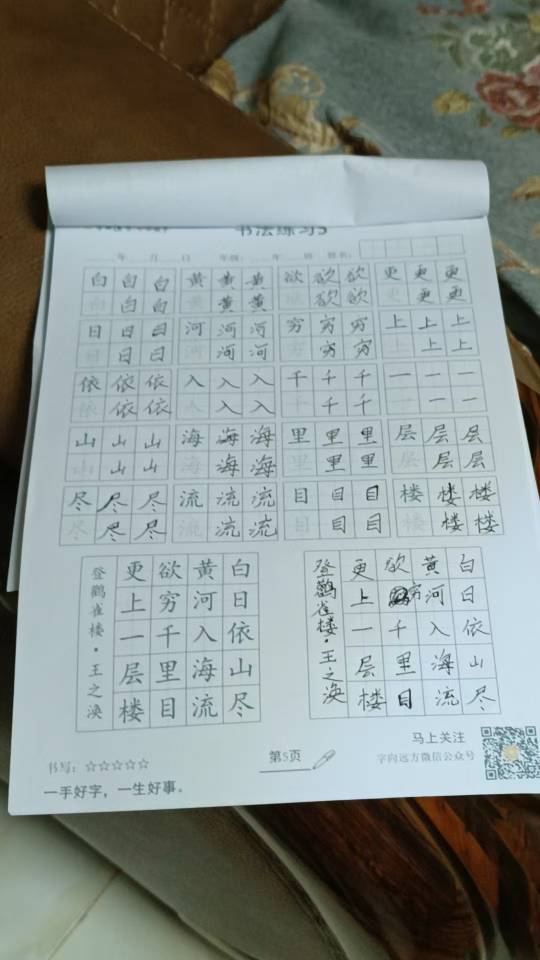 书法练习5
年 月 日 年级： 年 班 姓名：
白 白 白 黄 黄 黄 欲 欲 欲 更 更 更
白 白 白 黄 黄 黄 欲 欲 欲 更 更 更
日 日 日 河 河 河 穷 穷 穷 上 上 上
日 日 日 河 河 河 穷 穷 穷 上 上 上
依 依 依 入 入 入 千 千 千 一 一 一
依 依 依 入 入 入 千 千 千 一 一 一
山 山 山 海 海 海 里 里 里 层 层 层
山 山 山 海 海 海 里 里 里 层 层 层
尽 尽 尽 流 流 流 目 目 目 楼 楼 楼
尽 尽 尽 流 流 流 目 目 目 楼 楼 楼
登鹳雀楼·王之涣
白日依山尽
黄河入海流
欲穷千里目
更上一层楼
登鹳雀楼·王之涣
白日依山尽
黄河入海流
欲穷千里目
更上一层楼
书写：☆☆☆☆☆
第5页
马上关注
字向远方微信公众号
一手好字，一生好事。